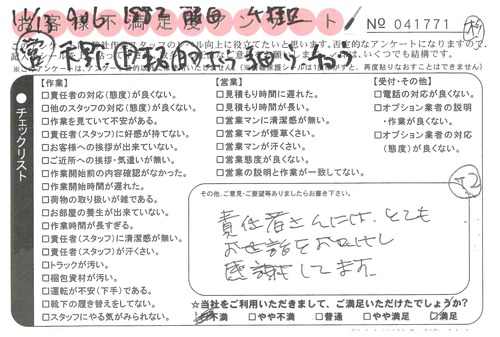 お客様不満足度アンケート
No 041771
【作業】
□責任者の対応(態度)が良くない。
□他のスタッフの対応(態度)が良くない。
□作業を見ていて不安がある。
□責任者(スタッフ)に好感が持てない。
□お客様への挨拶が出来ていない。
□ご近所への挨拶・気遣いが無い。
□作業開始前の内容確認がなかった。
□作業開始時間が遅れた。
□荷物の取り扱いが雑である。
□お部屋の養生が出来ていない。
□作業時間が長すぎる。
□責任者(スタッフ)に清潔感が無い。
□責任者(スタッフ)が汗くさい。
□トラックが汚い。
□梱包資材が汚い。
□運転が不安(下手)である。
□靴下の履き替えをしてない。
□スタッフにやる気がみられない。
【営業】
□見積もり時間に遅れた。
□見積もり時間が長い。
□営業マンに清潔感が無い。
□営業マンが煙草くさい。
□営業マンが汗くさい。
□営業態度が良くない。
□営業の説明と作業が一致してない。
【受付・その他】
□電話の対応が良くない。
□オプション業者の説明
・作業が良くない。
□オプション業者の対応
(態度)が良くない。
チェックリスト
その他、ご意見・ご要望等ありましたらお書き下さい。
責任者さんには、とても
お世話をおかけし
感謝してます。
☆当社をご利用いただきまして、ご満足いただけたでしょうか?
不満 □やや不満 □普通 □やや満足 □満足